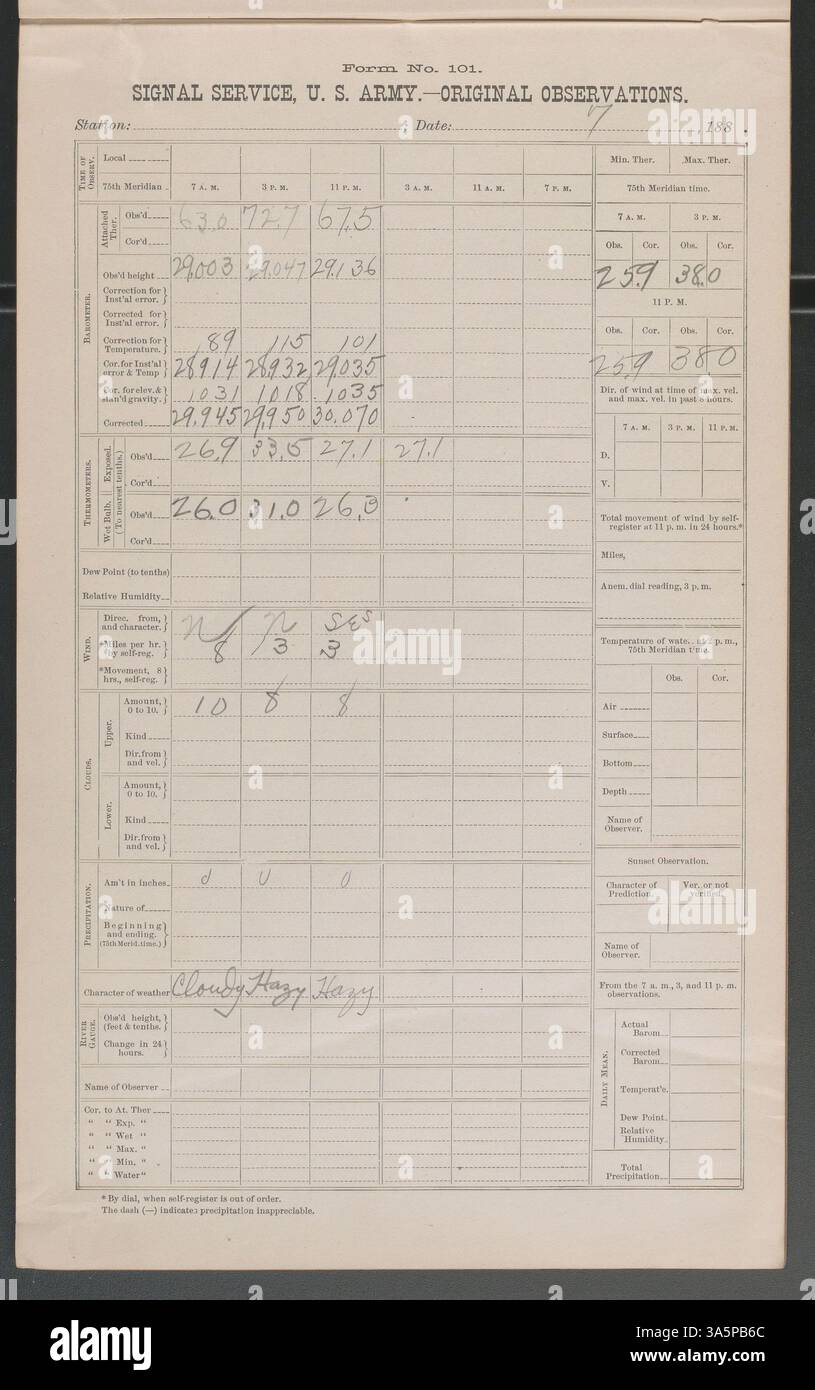 Form No. 101.
SIGNAL SERVICE, U. S. ARMY.—ORIGINAL OBSERVATIONS.
Station: ; Date: 7 , 188 .
TIME OF OBSERV.
Local
75th Meridian 7 A. M. 3 P. M. 11 P. M. 3 A. M. 11 A. M. 7 P. M.
BAROMETER.
Attached Ther.
Obs'd 63.0 72.7 67.5
Cor'd
Obs'd height 29.003 29.047 29.136
Correction for Inst'al error.
Corrected for Inst'al error.
Correction for Temperature. .89 .115 .101
Cor. for Inst'al error & Temp 28.914 28.932 29.035
Cor. for elev. & stan'd gravity. 1.031 1.018 1.035
Corrected 29.945 29.950 30.070
THERMOMETERS.
(To nearest tenths.)
Exposed.
Obs'd 26.9 33.5 27.1 27.1
Cor'd
Wet Bulb.
Obs'd 26.0 31.0 26.3
Cor'd
Dew Point (to tenths)
Relative Humidity
WIND.
Direc. from, and character. N N
*Miles per hr. by self-reg. 8 3 3
*Movement, 8 hrs., self-reg.
CLOUDS.
Upper.
Amount, 0 to 10. 10 8 8
Kind
Dir. from and vel.
Lower.
Amount, 0 to 10.
Kind
Dir. from and vel.
PRECIPITATION.
Am't in inches 0 0 0
Nature of
Beginning and ending. (75th Merid. time.)
Character of weather Cloudy Hazy Hazy
RIVER GAUGE.
Obs'd height, (feet & tenths.)
Change in 24 hours.
Name of Observer
Cor. to At. Ther
“ “ Exp. “
“ “ Wet “
“ “ Max. “
“ “ Min. “
“ “ Water “
Min. Ther. Max. Ther.
75th Meridian time.
7 A. M. 3 P. M.
Obs. Cor. Obs. Cor.
25.9 38.0
11 P. M.
Obs. Cor. Obs. Cor.
25.9 38.0
Dir. of wind at time of max. vel. and max. vel. in past 8 hours.
7 A. M. 3 P. M. 11 P. M.
D.
V.
Total movement of wind by self-register at 11 p. m. in 24 hours.*
Miles,
Anem. dial reading, 3 p. m.
Temperature of water at p. m., 75th Meridian time.
Obs. Cor.
Air
Surface
Bottom
Depth
Name of Observer.
Sunset Observation.
Character of Prediction. Ver. or not verified.
Name of Observer.
From the 7 a. m., 3, and 11 p. m. observations.
DAILY MEAN.
Actual Barom.
Corrected Barom.
Temperat'e.
Dew Point.
Relative Humidity.
Total Precipitation.
* By dial, when self-register is out of order.
The dash (—) indicates precipitation inappreciable.
alamy
alamy
alamy
alamy
a
a
a
a
alamy
3A5PB6C
www.alamy.com